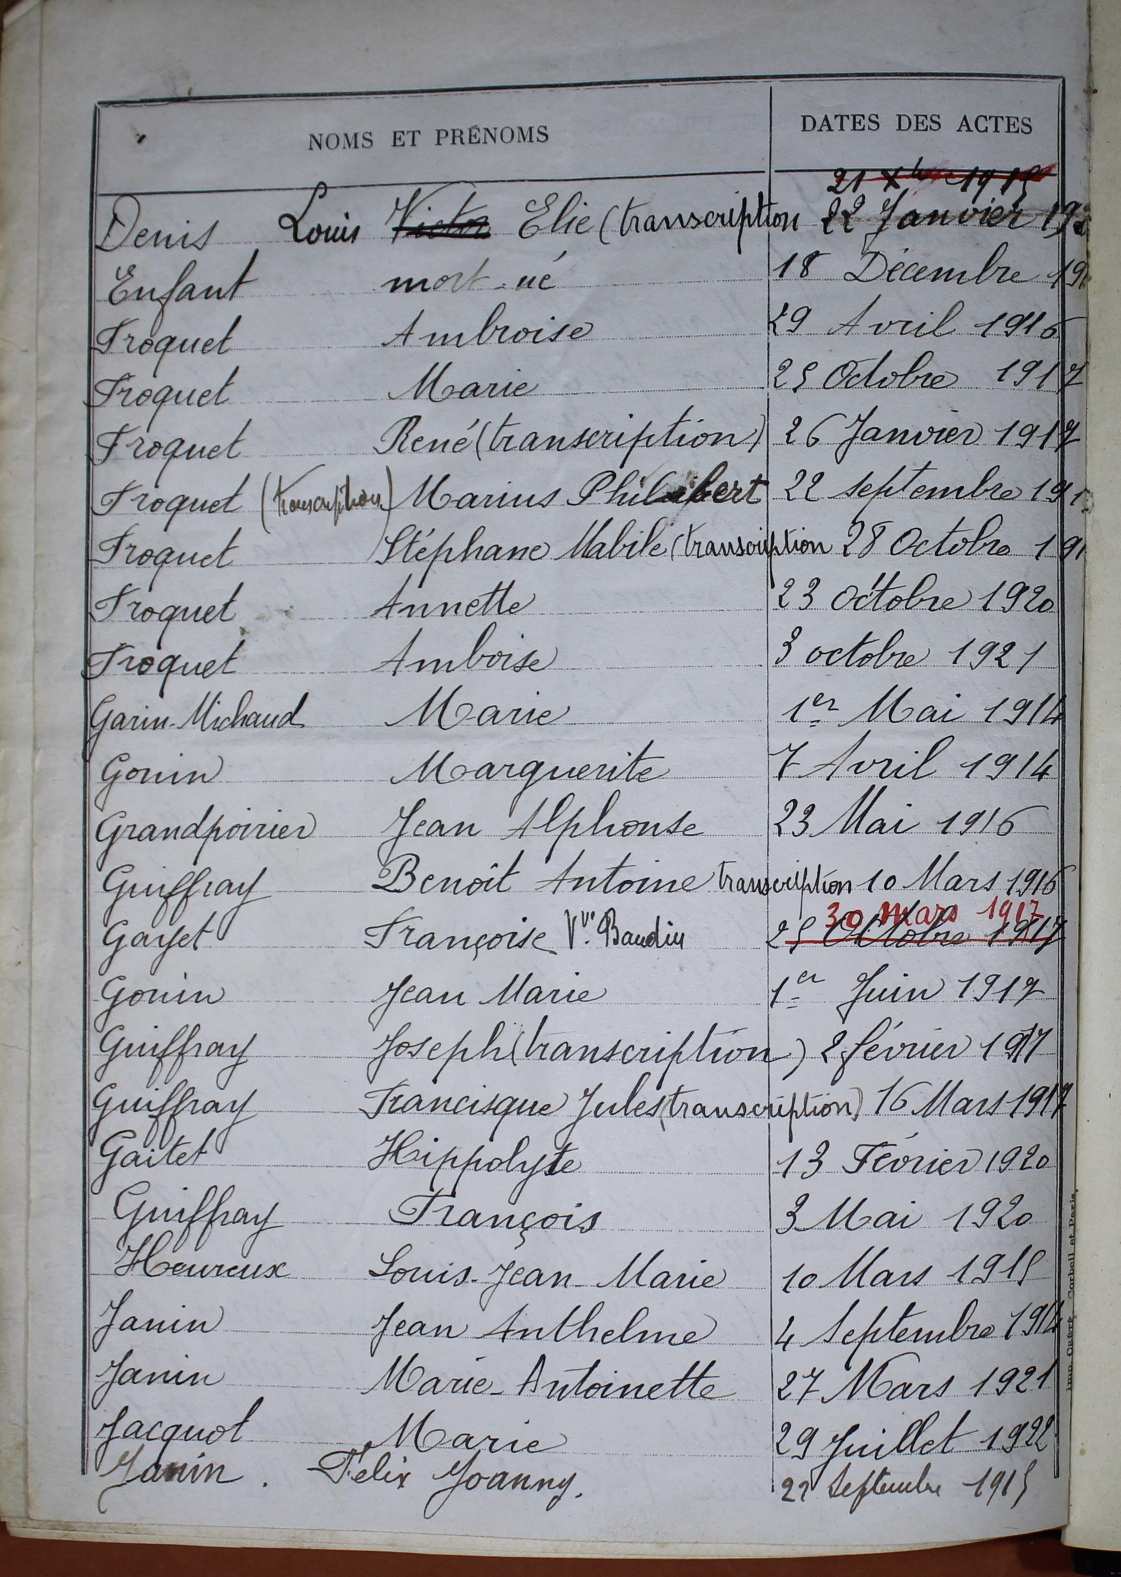 NOMS ET PRÉNOMS DATES DES ACTES
21 Xbre 1915
Denis Louis Victor Elie (transcription 22 Janvier 192
Enfant mort-né 18 Décembre 19
Troquet Ambroise 29 Avril 1916
Troquet Marie 25 Octobre 1917
Troquet René (transcription) 26 Janvier 1917
Troquet (transcription) Marius Philibert 22 septembre 191
Troquet Stéphane Mabile (transcription 28 Octobre 191
Troquet Annette 23 Octobre 1920
Troquet Amboise 3 octobre 1921
Garin-Michaud Marie 1er Mai 1914
Gonin Marguerite 7 Avril 1914
Grandpoirier Jean Alphonse 23 Mai 1916
Guiffray Benoît Antoine transcription 10 Mars 1916
30 Mars 1917
Gayet Françoise Vve Baudin 25 Octobre 1917
Gonin Jean Marie 1er Juin 1917
Guiffray Joseph (transcription) 2 février 1917
Guiffray Francisque Jules (transcription) 16 Mars 1917
Gaitet Hippolyte 13 Février 1920
Guiffray François 3 Mai 1920
Heureux Louis-Jean-Marie 10 Mars 1915
Janin Jean Anthelme 4 Septembre 1914
Janin Marie-Antoinette 27 Mars 1921
Jacquot Marie 29 Juillet 1922
Janin. Félix Joanny. 22 Septembre 1915